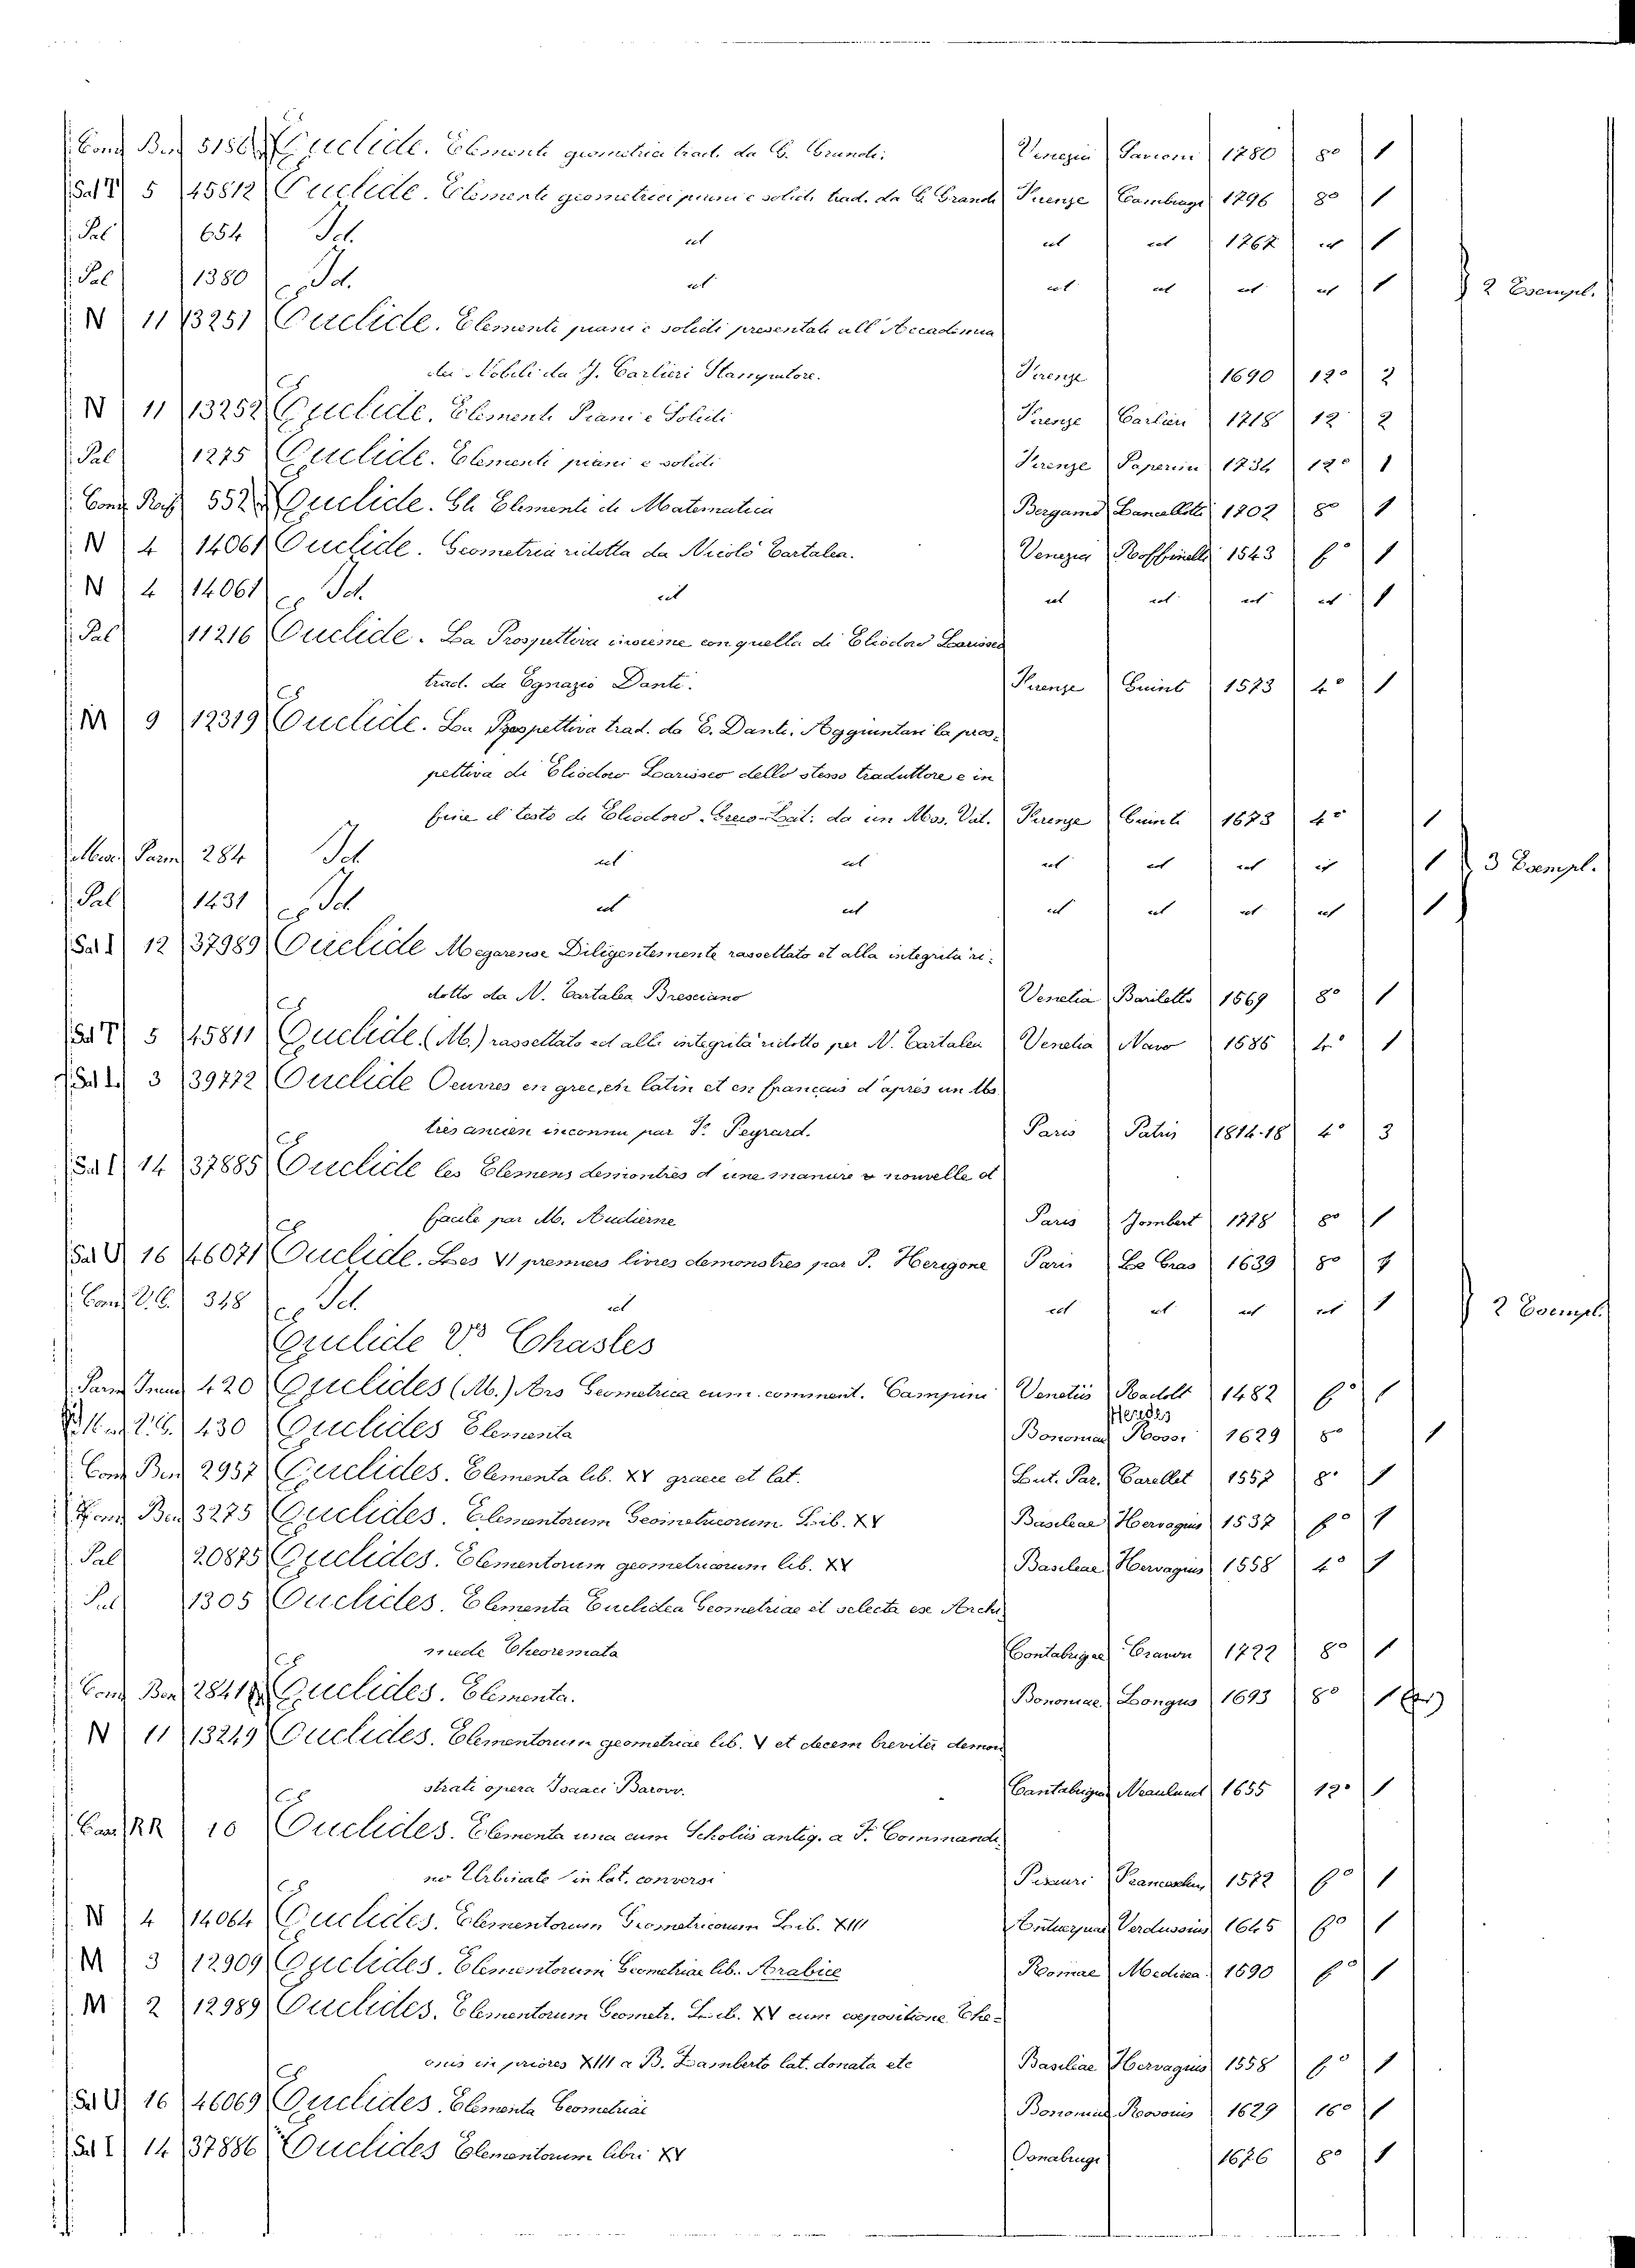 Euclide. Elementi geometrici trad. da G. Grandi. Venezia Savioni 1780 8° 1
Sal T 5 45812 Euclide. Elementi geometrici piani e solidi trad. da G. Grandi Firenze Cambiagi 1796 8° 1
Pal 654 Id. id id id 1767 id 1
Pal 1380 Id. id id id id id 1 2 Esempl.
N 11 13251 Euclide. Elementi piani e solidi presentati all'Accademia
dei Nobili da J. Carlieri Stampatore. Firenze 1690 12° 2
N 11 13252 Euclide. Elementi Piani e Solidi Firenze Carlieri 1718 12 2
Pal 1275 Euclide. Elementi piani e solidi Firenze Paperini 1734 12° 1
552 Euclide. Gli Elementi di Matematica Bergamo Lancellotti 1802 8° 1
N 4 14061 Euclide. Geometria ridotta da Nicolò Tartalea. Venezia Roffinelli 1543 f° 1
N 4 14061 Id. id id id id id 1
Pal 11216 Euclide. La Prospettiva insieme con quella di Eliodoro Larisseo
trad. da Egnazio Danti. Firenze Giunti 1573 4° 1
M 9 12319 Euclide. La Prospettiva trad. da E. Danti. Aggiuntavi la pros-
pettiva di Eliodoro Larisseo dello stesso traduttore e in
fine il testo di Eliodoro Greco-Lat: da un Mss. Vat. Firenze Giunti 1573 4° 1
284 Id id id id id id id 1 3 Esempl.
Pal 1431 Id id id id id id id 1
Sal I 12 37989 Euclide Megarense Diligentemente rassettato et alla integrità ri-
dotto da N. Tartalea Bresciano Venetia Bariletto 1569 8° 1
Sal T 5 45811 Euclide (M.) rassettato ed alla integrità ridotto per N. Tartalea Venetia Navo 1585 4° 1
Sal L 3 39772 Euclide Oeuvres en grec, en latin et en français d'après un Ms
très ancien inconnu par F. Peyrard. Paris Patris 1814-18 4° 3
Sal I 14 37885 Euclide les Elemens demontrés d'une manière nouvelle et
facile par M. Audierne Paris Jombert 1778 8° 1
Sal U 16 46071 Euclide. Les VI premiers livres demonstres par P. Herigone Paris Le Gras 1639 8° 1
348 Id. id id id id id 1 2 Esempl.
Euclide Vo Chasles
420 Euclides (M.) Ars Geometrica cum comment. Campani Venetiis Radolt 1482 f° 1
430 Euclides Elementa Bononiae Heredes Rossi 1629 8° 1
Con. Ben 2957 Euclides. Elementa lib. XV graece et lat. Lut. Par. Cavellet 1557 8° 1
Ben 3275 Euclides. Elementorum Geometricorum Lib. XV Basileae Hervagius 1537 f° 1
Pal 20875 Euclides. Elementorum geometricorum lib. XV Basileae Hervagius 1558 4° 1
Pal 1305 Euclides. Elementa Euclidea Geometriae et selecta ex Archi-
mede Theoremata Contabrigae Craven 1722 8° 1
Euclides. Elementa. Bononiae Longus 1693 8° 1
N 11 13249 Euclides. Elementorum geometriae lib. V et decem breviter demon
strati opera Isaaci Barovv. Cantabrigae 1655 12° 1
RR 10 Euclides. Elementa una cum Scholiis antiq. a F. Commandi
no Urbinate in lat. conversi Pisauri 1572 f° 1
N 4 14064 Euclides. Elementorum Geometricorum Lib. XIII Antuerpiae Verdussius 1645 f° 1
M 3 12909 Euclides. Elementorum Geometriae lib. Arabice Romae Medicea 1590 f° 1
M 2 12989 Euclides. Elementorum Geometr. Lib. XV cum expositione The-
onis in priores XIII a B. Zamberto lat. donata etc Basiliae Hervagius 1558 f° 1
Sal U 16 46069 Euclides Elementa Geometriae Bononiae 1629 16° 1
Sal I 14 37886 Euclides Elementorum libri XV Osnabruge 1676 8° 1